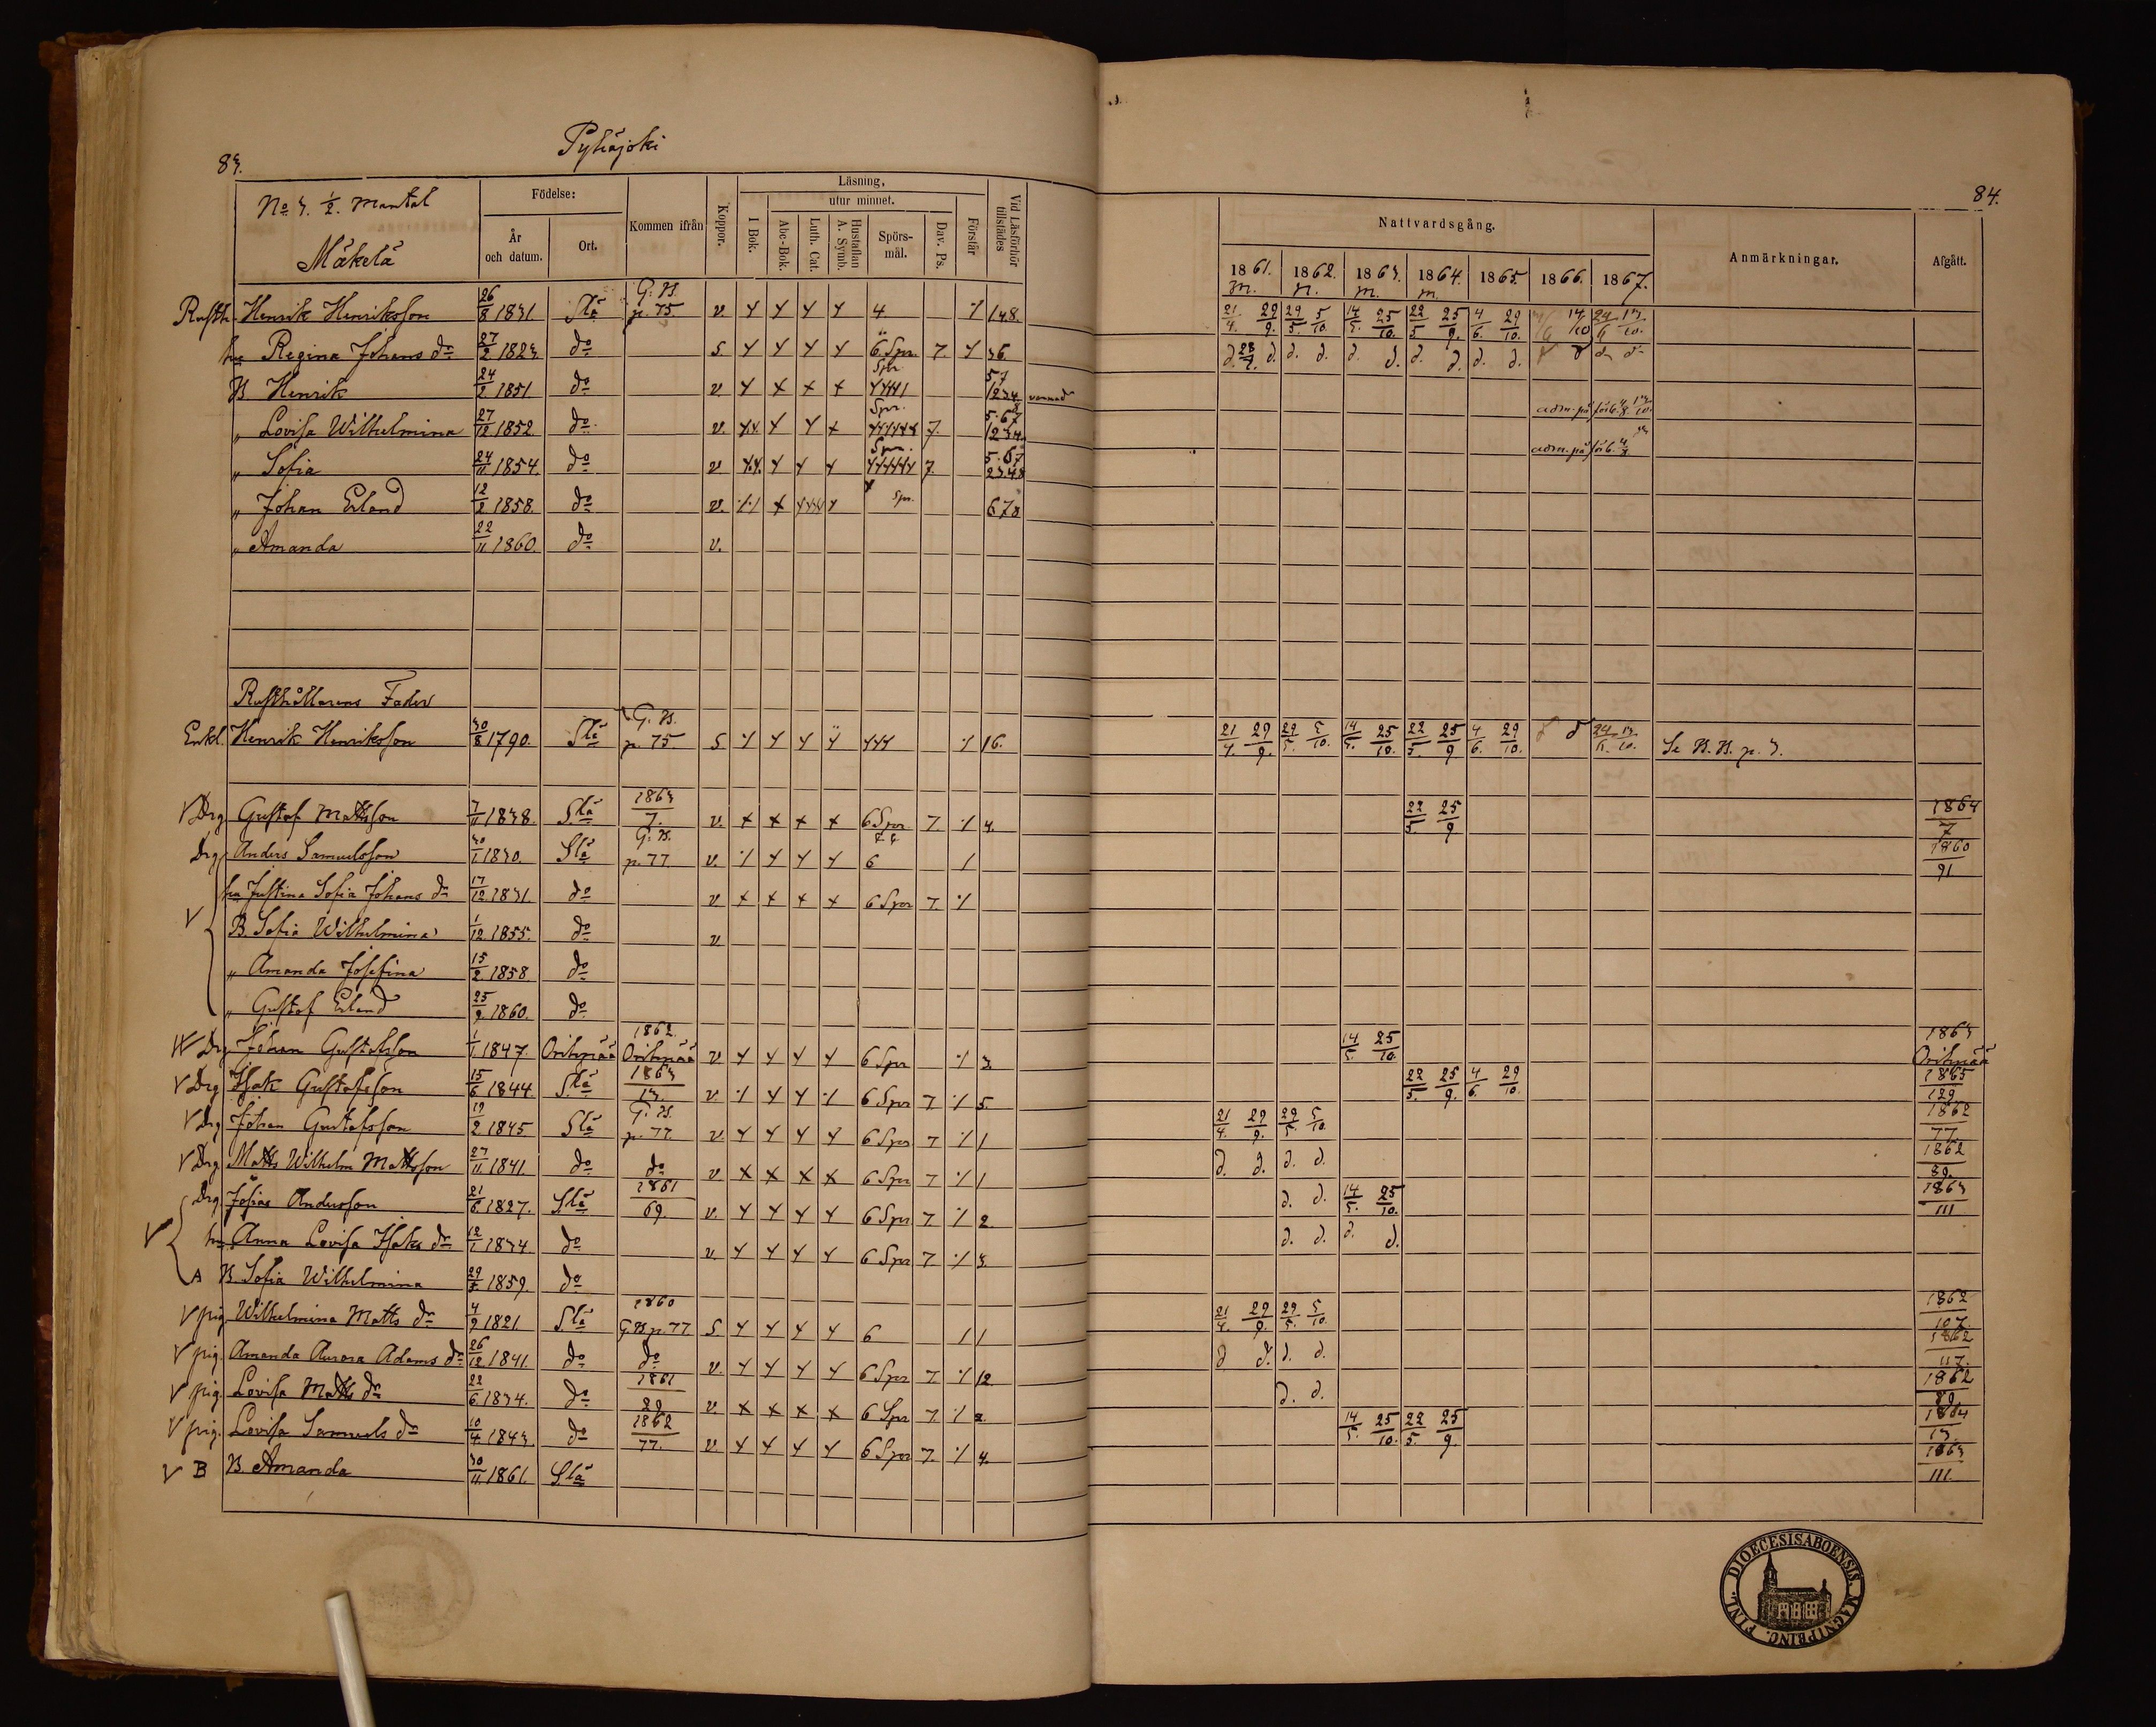 83.
Pyhäjoki
84.
No 3. 1/2. Mantal
Mäkelä
Födelse:
År och datum.
Ort.
Kommen ifrån
Koppor.
Läsning,
I Bok.
utur minnet.
Abc-Bok.
Luth. Cat.
Hustaflan A. Symb.
Spörs-mål.
Dav. Ps.
Förstår
Vid Läsförhör tillstädes
Nattvardsgång.
1861. 1862. 1863. 1864. 1865. 1866. 1867.
Anmärkningar.
Afgått.
Rusth. Henrik Henriksson 26/8 1831 Slä G. B. p. 75. v. 4 148. 21/4. 29/9. 29/5. 5/10. 14/5. 25/10. 22/5 25/9. 4/6. 29/10.
hu Regina Johans dr 27/2 1823 do S. 6. Spr. 7. 36.
B Henrik 24/2 1851 do v. Spr. 57 1234 vannad adm. på förb.
" Lovisa Wilhelmina 27/12 1852. do v. Spr. 7. 5.67 1234. adm. på förb.
" Sofia 24/11 1854. do v. Spr. 7. 5.67 23.48
" Johan Erland 12/2 1858. do v. Spr. 678
" Amanda 22/11 1860. do v.
Rusthållarens Fader
Enkl. Henrik Henriksson 30/8 1790. Slä G. B. p. 75. S. 16. 21/4. 29/9. 29/5. 5/10. 14/5. 25/10. 22/5. 25/9 4/6. 29/10. Se B. B. p. 3.
V Drg Gustaf Mattsson 7/11 1838. Slä 1863/7. v. 6 Spr 7. 4. 22/5. 25/9 1864/7
Drg Anders Samuelsson 30/1 1830. Slä G. B. p. 77. v. 6 1860/91
hu Justina Sofia Johans dr 13/12 1831. do v 6 Spr 7.
V B. Sofia Wilhelmina 1/12. 1855. do v
" Amanda Josefina 15/2. 1858 do
" Gustaf Erland 25/9 1860. do
Drg Johan Gustafsson 1/1. 1847. Orihpää 1862 Orihpää v 6 Spr 3. 14/5. 25/10. 1863 Orihpää
V Drg Isak Gustafsson 15/6 1844. Slä 1863/13. v 6 Spr 7 5. 22/5. 25/9. 4/6. 29/10. 1865/129
V Drg Johan Gustafsson 19/2 1845 Slä G. B. p. 77. v. 6 Spr 7 1 21/4. 29/9. 29/5. 5/10. 1862/77.
V Drg Matts Wilhelm Mattsson 27/11 1841. do do v 6 Spr 7 1 d. d. d. d. 1862/89.
Drg Josias Andersson 21/6 1827. Slä 1861/69. v. 6 Spr 7 2. d. d. 14/5. 25/10. 1863/111
V hu Anna Lovisa Isaks dr 12/1 1834. do v. 6 Spr 7. 3. d. d. d. d.
A B Sofia Wilhelmina 1859. do
V pig Wilhelmina Matts dr 4/9 1821. Slä 1860 G. B. p. 77 S. 6 1 21/4. 29/9. 29/5. 5/10. 1862/107.
V pig. Amanda Aurora Adams dr 26/12 1841. do do v. 6 Spr 7. 12. d d. d. d. 1862/117.
V pig. Lovisa Matts dr 22/6. 1834. do 1861/29 v. 6 Spr 7. 2. d. d. 1862/89
V pig. Lovisa Samuels dr 10/4 1843. do 1862/77. v. 6 Spr 7. 4. 14/5. 25/10. 22/5. 25/9. 1864/13.
V B B. Amanda 30/11 1861. Slä 1863/111.
DIOECESIS ABOENSIS. MAGNI PRINC. FINL.